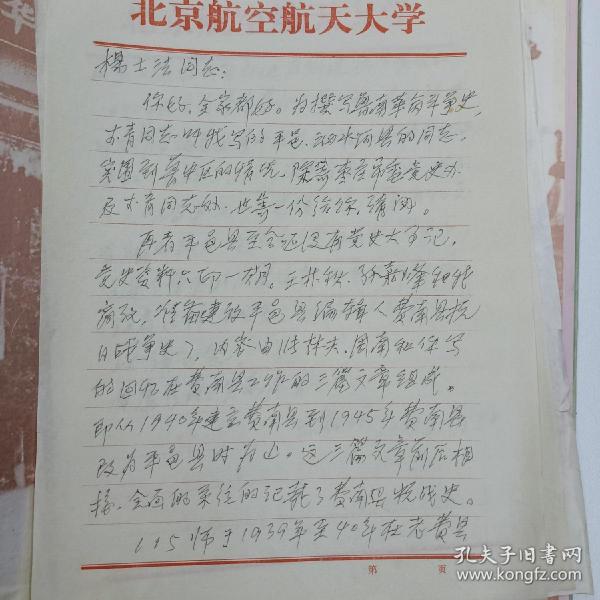 北京航空航天大学
杨士法同志：
你好，全家都好。为撰写鲁南革命斗争史，
木青同志叫我写的平邑、泗水河县的同志，
突围到鲁中区的情况，除寄枣庄市委党史办
及木青同志外，也寄一份给你，请阅。
再者平邑县至今还没有党史大事记，
党史资料只印一期。王林秋、孙嘉峰和我
商讨，准备建议平邑县编辑《费南县抗
日战争史》，内容由林夫、周南和你写
的回忆在费南县工作的三篇文章组成。
即从1940年建立费南县到1945年费南县
改为平邑县时为止。这三篇文章前后相
接，全面的系统的记载了费南县抗战史。
115师于1939年至40年在老费县
第 页
孔夫子旧书网
www.kongfz.com